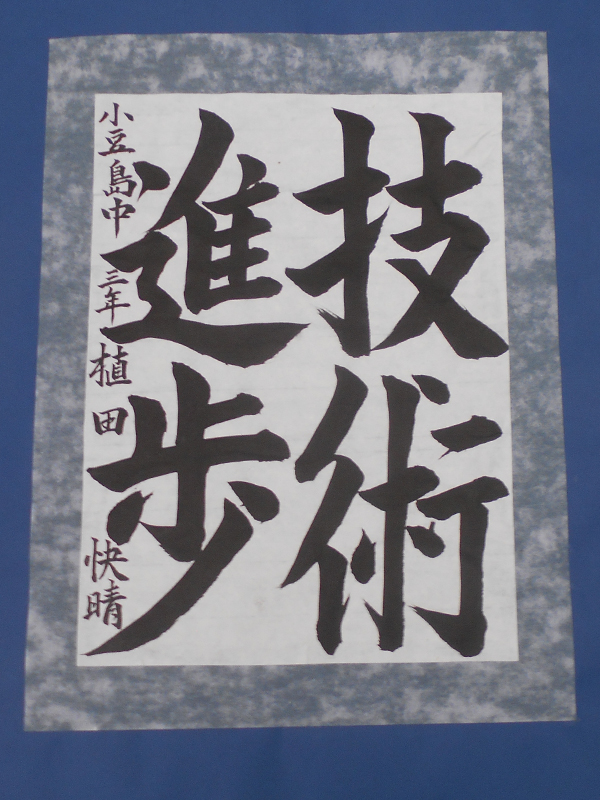 技術
進歩
小豆島中 三年 植田 快晴